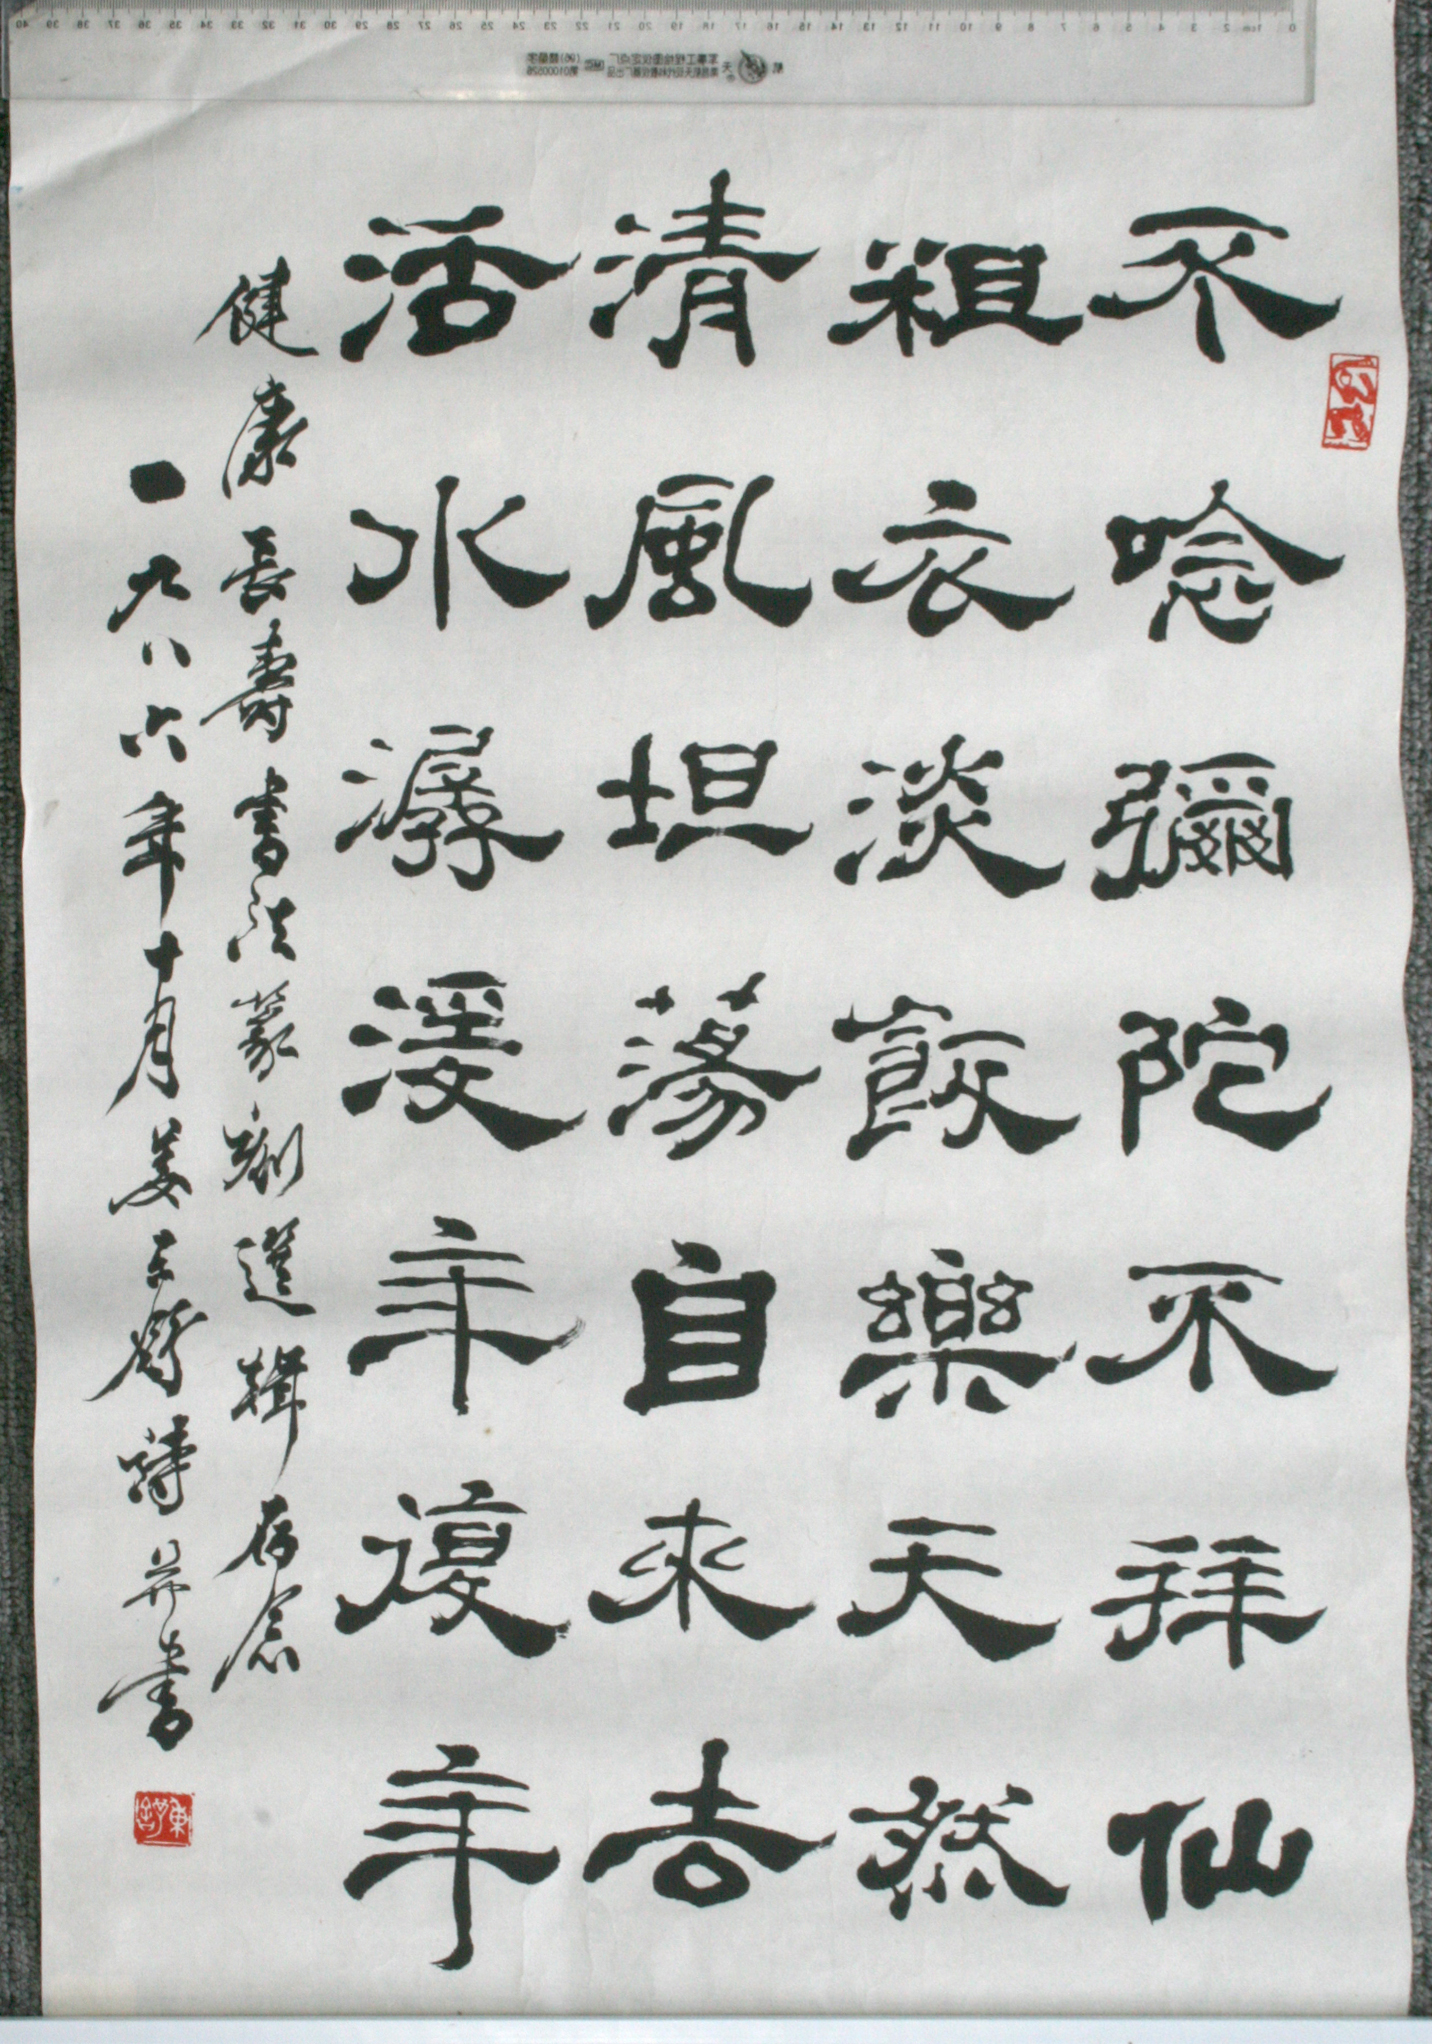 不唸彌陀不拜仙
粗衣淡飯樂天然
清風坦蕩自來去
活水潺湲年復年
健康長壽書法篆刻選輯存念
一九八六年十月姜东舒詩并書
東舒